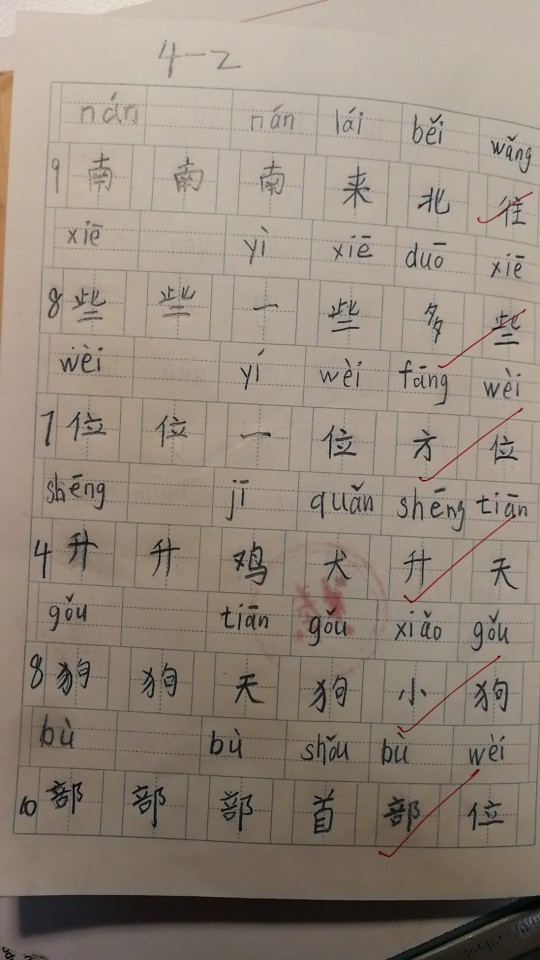 4-2
nán nán lái běi wǎng
9 南 南 南 来 北 往
xiē yì xiē duō xiē
8 些 些 一 些 多 些
wèi yí wèi fāng wèi
7 位 位 一 位 方 位
shēng jī quǎn shēng tiān
4 升 升 鸡 犬 升 天
gǒu tiān gǒu xiǎo gǒu
8 狗 狗 天 狗 小 狗
bù bù shǒu bù wèi
10 部 部 部 首 部 位